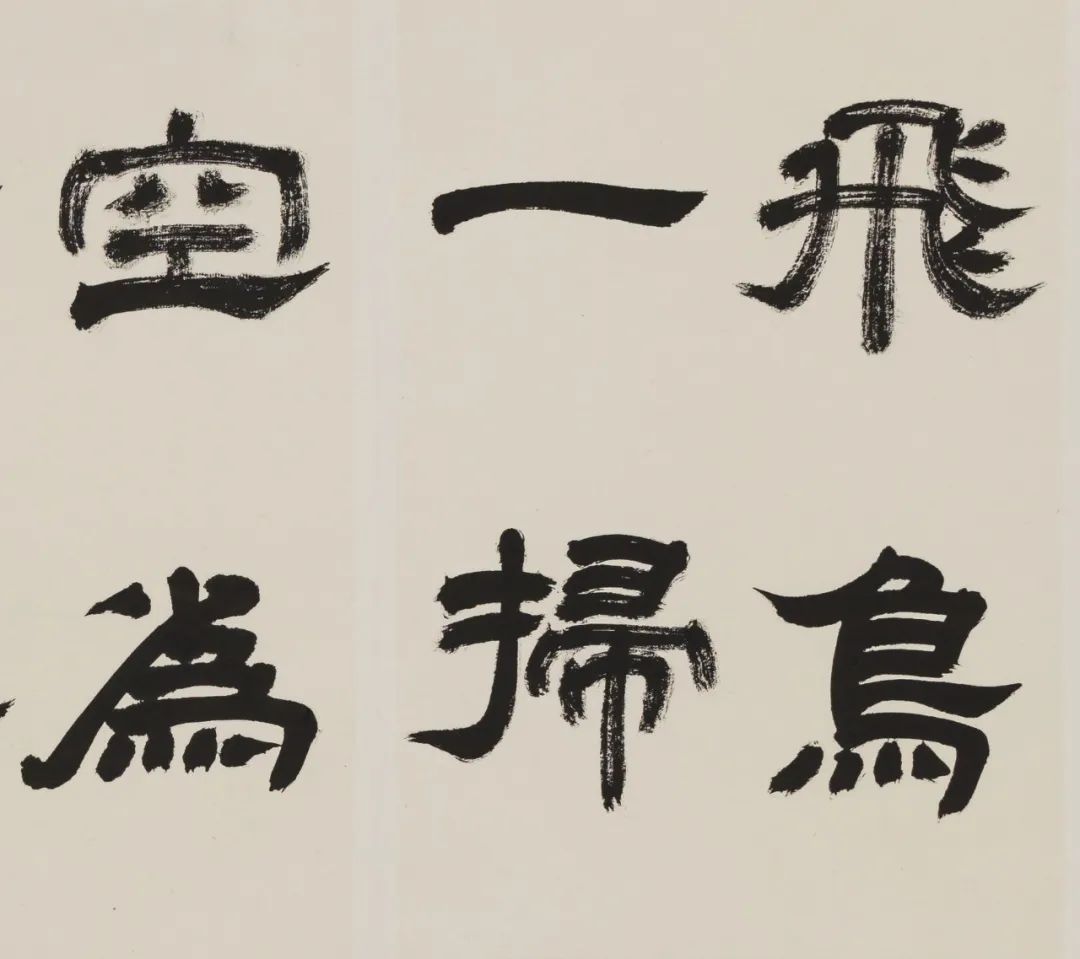 飛鳥
一掃
空為